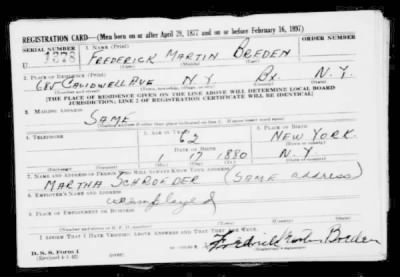 REGISTRATION CARD—(Men born on or after April 28, 1877 and on or before February 16, 1897)
SERIAL NUMBER 1. NAME (Print) ORDER NUMBER
U 1278 FREDERICK MARTIN BREDEN
2. PLACE OF RESIDENCE (Print)
685 CAULDWELL AVE N.Y. Bx. N.Y.
[THE PLACE OF RESIDENCE GIVEN ON THE LINE ABOVE WILL DETERMINE LOCAL BOARD
JURISDICTION; LINE 2 OF REGISTRATION CERTIFICATE WILL BE IDENTICAL]
3. MAILING ADDRESS
SAME
4. TELEPHONE 5. AGE IN YEARS 6. PLACE OF BIRTH
62 NEW YORK
DATE OF BIRTH
1 17 1880 N.Y.
7. NAME AND ADDRESS OF PERSON WHO WILL ALWAYS KNOW YOUR ADDRESS
MARTHA SCHROEDER (SAME ADDRESS)
8. EMPLOYER'S NAME AND ADDRESS
unemployed
9. PLACE OF EMPLOYMENT OR BUSINESS
I AFFIRM THAT I HAVE VERIFIED ABOVE ANSWERS AND THAT THEY ARE TRUE.
D. S. S. Form 1 Frederick Martin Breden